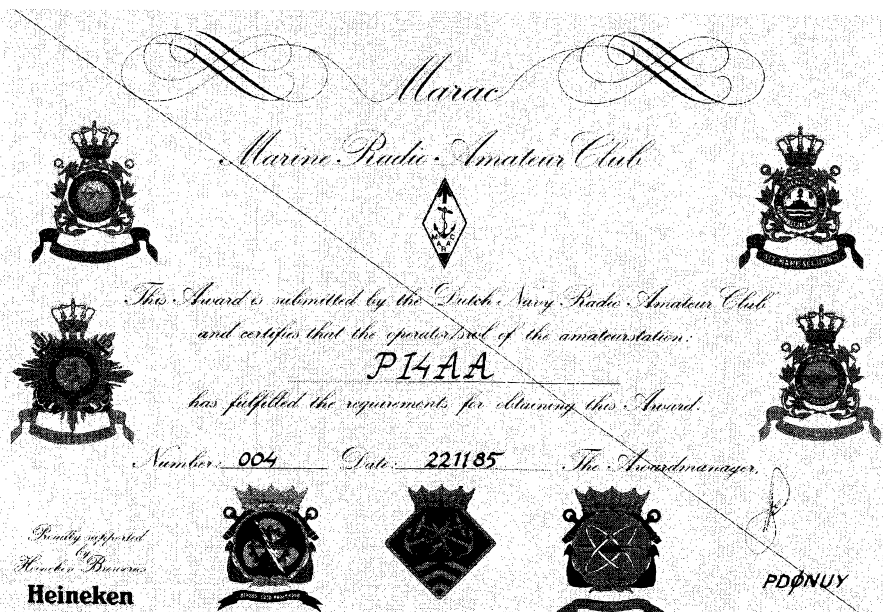 Marac
Marine Radio Amateur Club
M A R A C
This Award is submitted by the Dutch Navy Radio Amateur Club
and certifies that the operator/swl of the amateurstation:
PI4AA
has fulfilled the requirements for obtaining this Award.
Number: 004 Date: 221185 The Awardmanager,
Proudly supported
by
Heineken Breweries
Heineken
PDØNUY